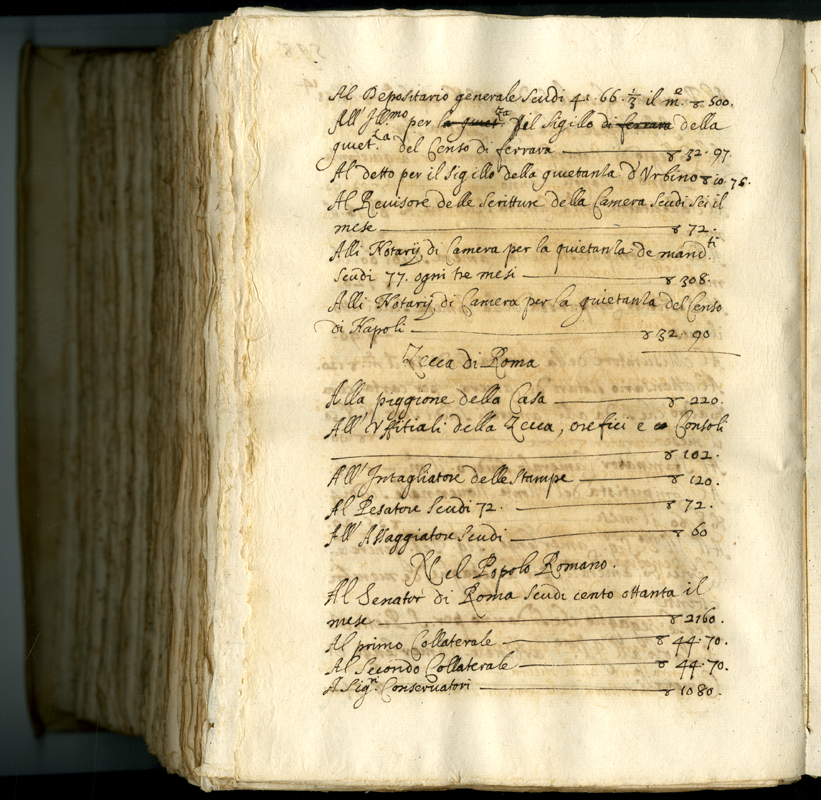 Al Depositario generale Scudi 41. 66. 1/3 il m.e ꝟ 500.
All' Ill.mo per la quiet.za del Sigillo di ferrara della
quiet.za del Censo di ferrara ꝟ 32. 97.
Al detto per il Sigillo della quietanza d'Urbino ꝟ 10. 75.
Al Revisore delle Scritture della Camera Scudi Sei il
mese ꝟ 72.
Alli Notarij di Camera per la quietanza de mand.ti
Scudi 77. ogni tre mesi ꝟ 308.
Alli Notarij di Camera per la quietanza del Censo
di Napoli ꝟ 32. 90
Zecca di Roma
Alla piggione della Casa ꝟ 220.
All' Uffitiali della Zecca, orefici e Consoli
ꝟ 102.
All' Intagliatore delle Stampe ꝟ 120.
Al Pesatore Scudi 72. ꝟ 72.
All' Assaggiatore Scudi ꝟ 60
Nel Popolo Romano.
Al Senator di Roma Scudi cento ottanta il
mese ꝟ 2160.
Al primo Collaterale ꝟ 44. 70.
Al Secondo Collaterale ꝟ 44. 70.
A Sig.ri Conservatori ꝟ 1080.